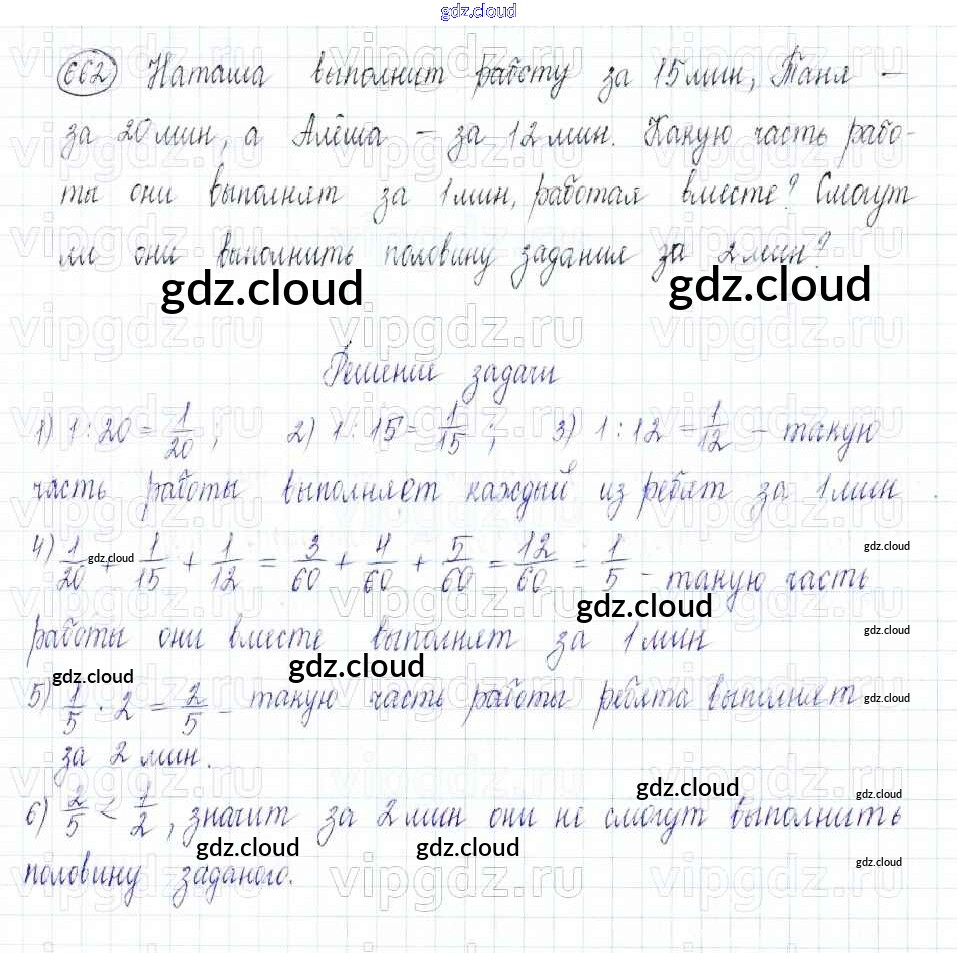 gdz.cloud
662 Наташа выполнит работу за 15 мин, Таня –
за 20 мин, а Алёша – за 12 мин. Какую часть рабо-
ты они выполнят за 1 мин, работая вместе? Смогут
ли они выполнить половину задания за 2 мин?
gdz.cloud gdz.cloud
Решение задачи
1) 1 : 20 = 1/20 ; 2) 1 : 15 = 1/15 ; 3) 1 : 12 = 1/12 – такую
часть работы выполняет каждый из ребят за 1 мин .
4) 1/20 + 1/15 + 1/12 = 3/60 + 4/60 + 5/60 = 12/60 = 1/5 – такую часть
gdz.cloud gdz.cloud
gdz.cloud
работы они вместе выполнят за 1 мин
gdz.cloud
gdz.cloud gdz.cloud
5) 1/5 · 2 = 2/5 – такую часть работы ребята выполнят
gdz.cloud
за 2 мин.
gdz.cloud gdz.cloud
6) 2/5 < 1/2 , значит за 2 мин они не смогут выполнить
gdz.cloud gdz.cloud
половину заданого.
gdz.cloud
vipgdz.ru